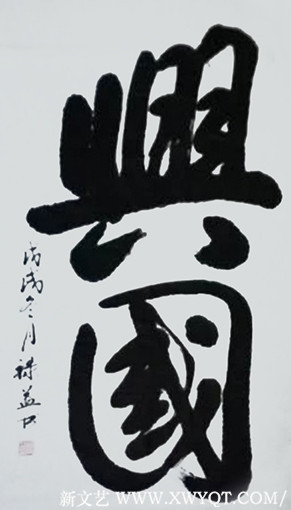 興國
戊戌冬月祿益书
新文艺 WWW.XWYQT.COM/